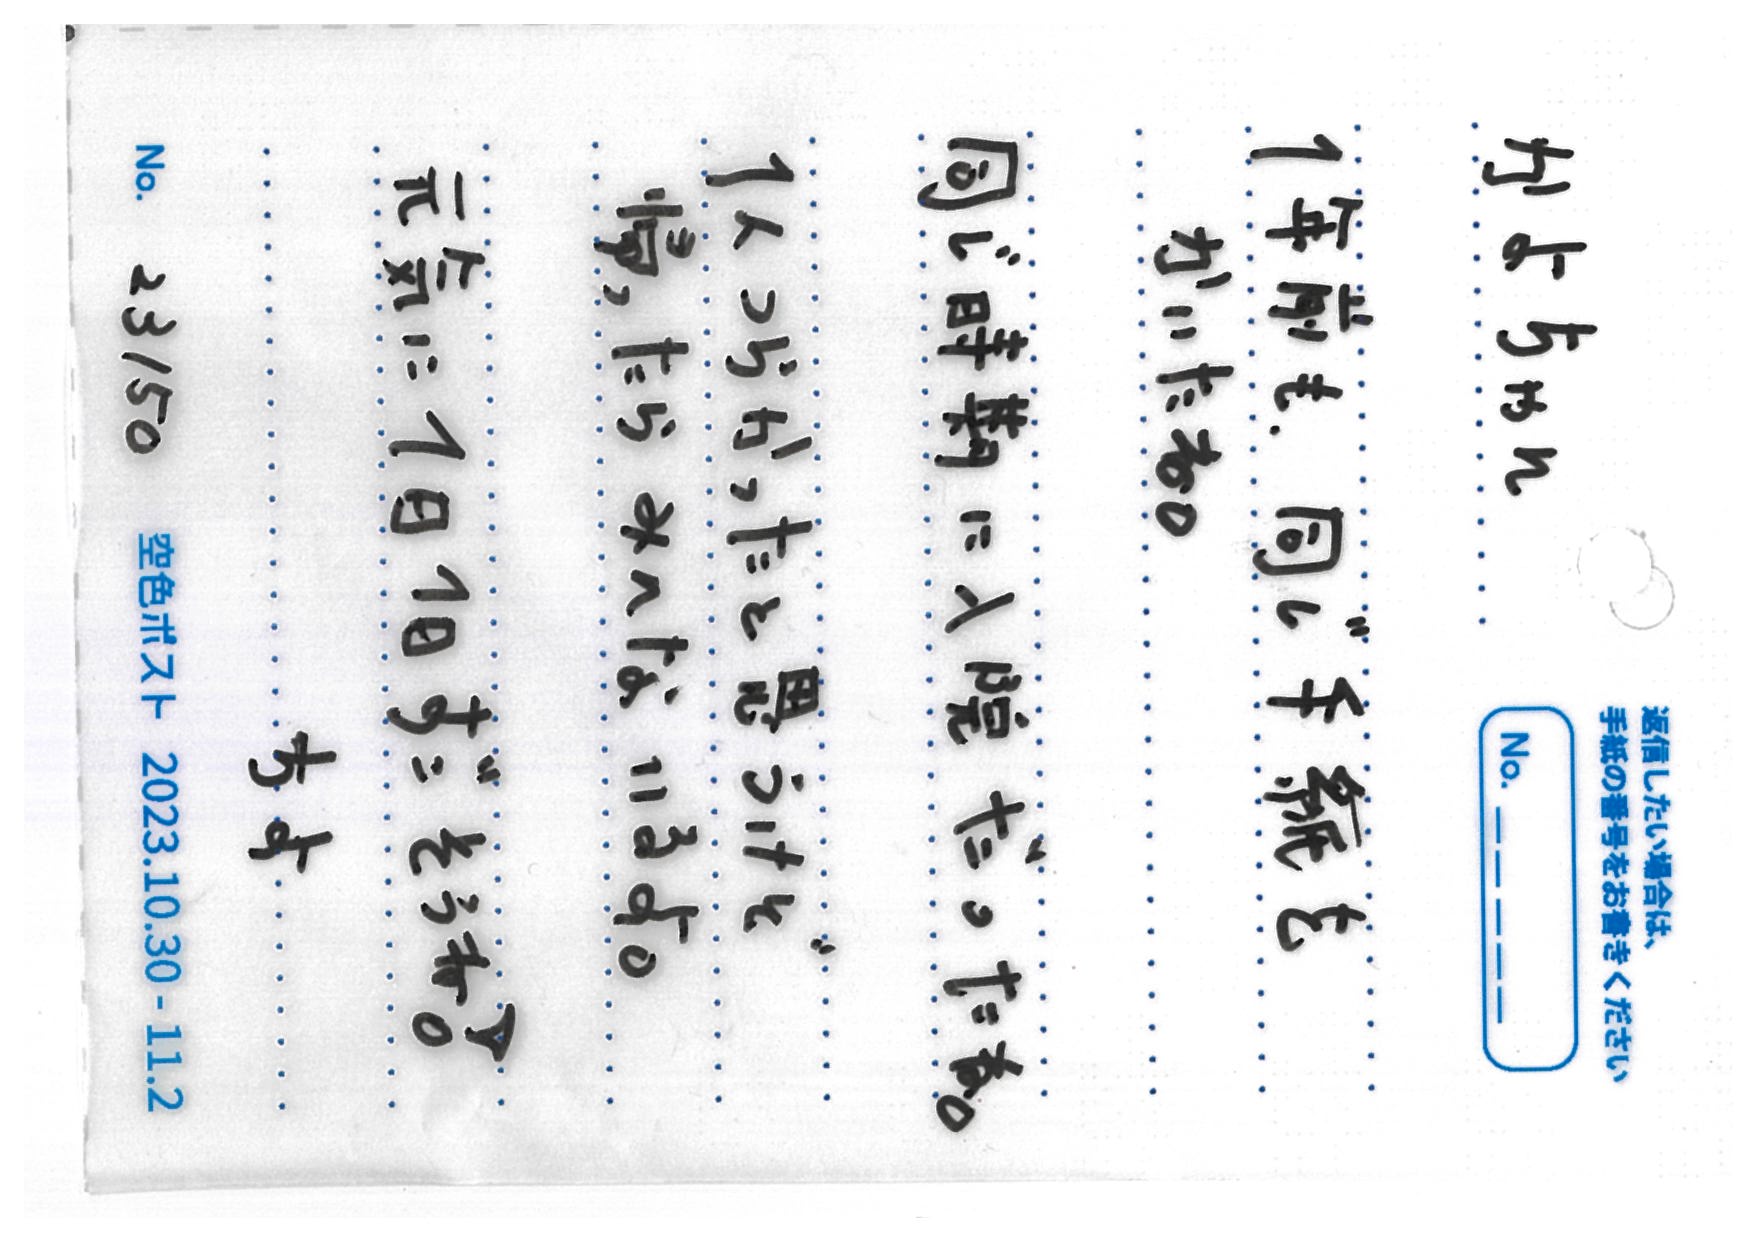 返信したい場合は、
手紙の番号をお書きください
No. _ _ _ _ _
かよちゃん
1年前も、同じ手紙を
かいたね。
同じ時期に入院だったね。
1人つらかったと思うけど
帰ったらみんないるよ。
元気に1日1日すごそうね!
ちよ
No. 23150
空色ポスト 2023.10.30 - 11.2